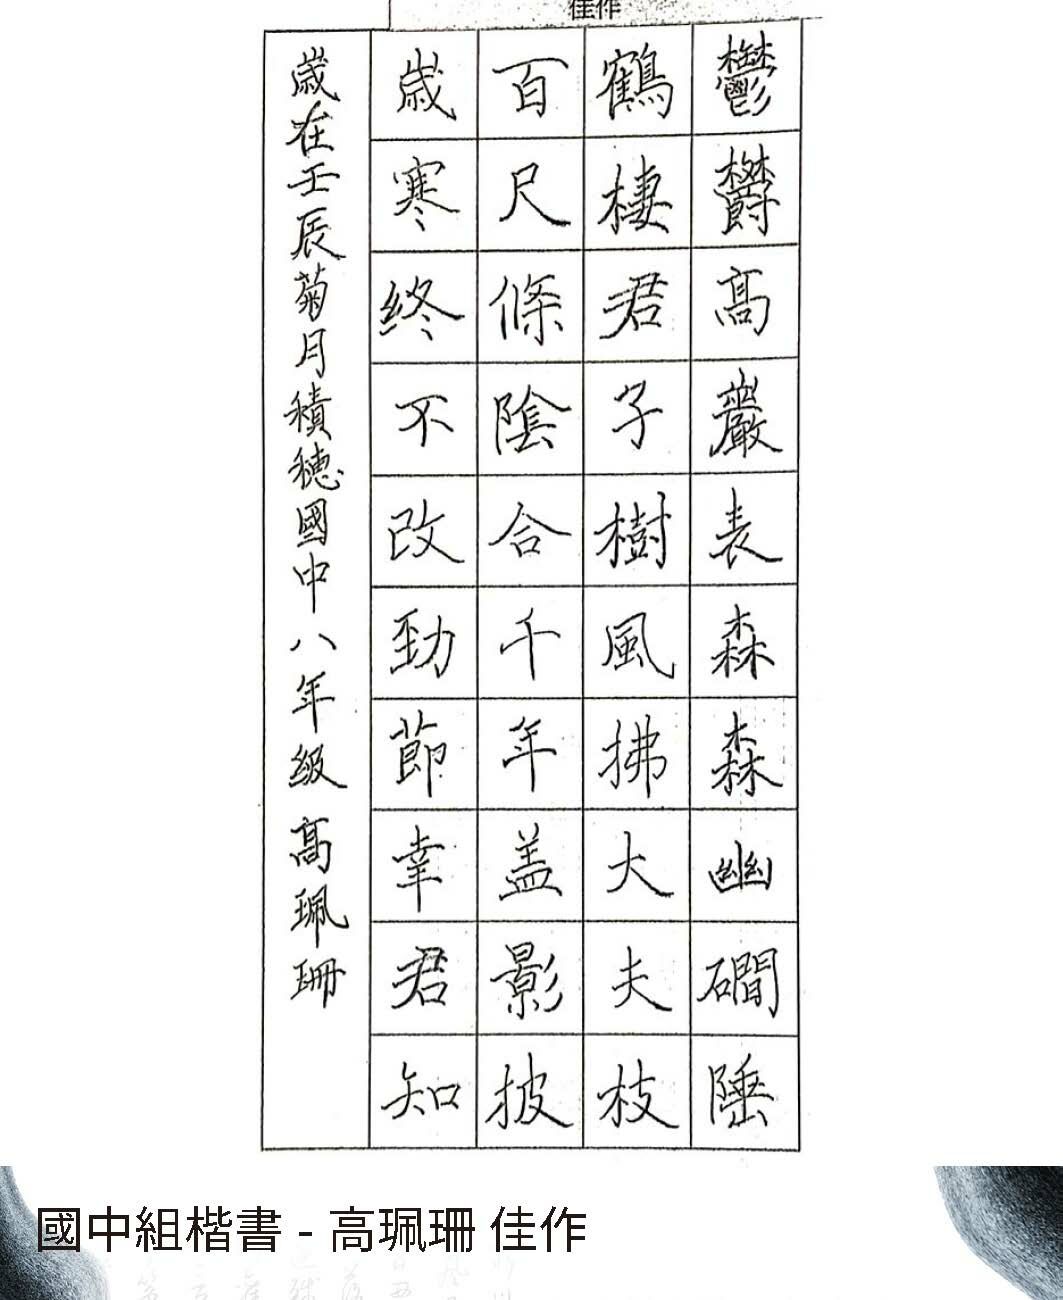 佳作
鬱鬱高巖表森森幽磵陲
鶴棲君子樹風拂大夫枝
百尺條陰合千年盖影披
歲寒終不改勁節幸君知
歲在壬辰菊月積穗國中八年級 高珮珊
國中組楷書 - 高珮珊 佳作